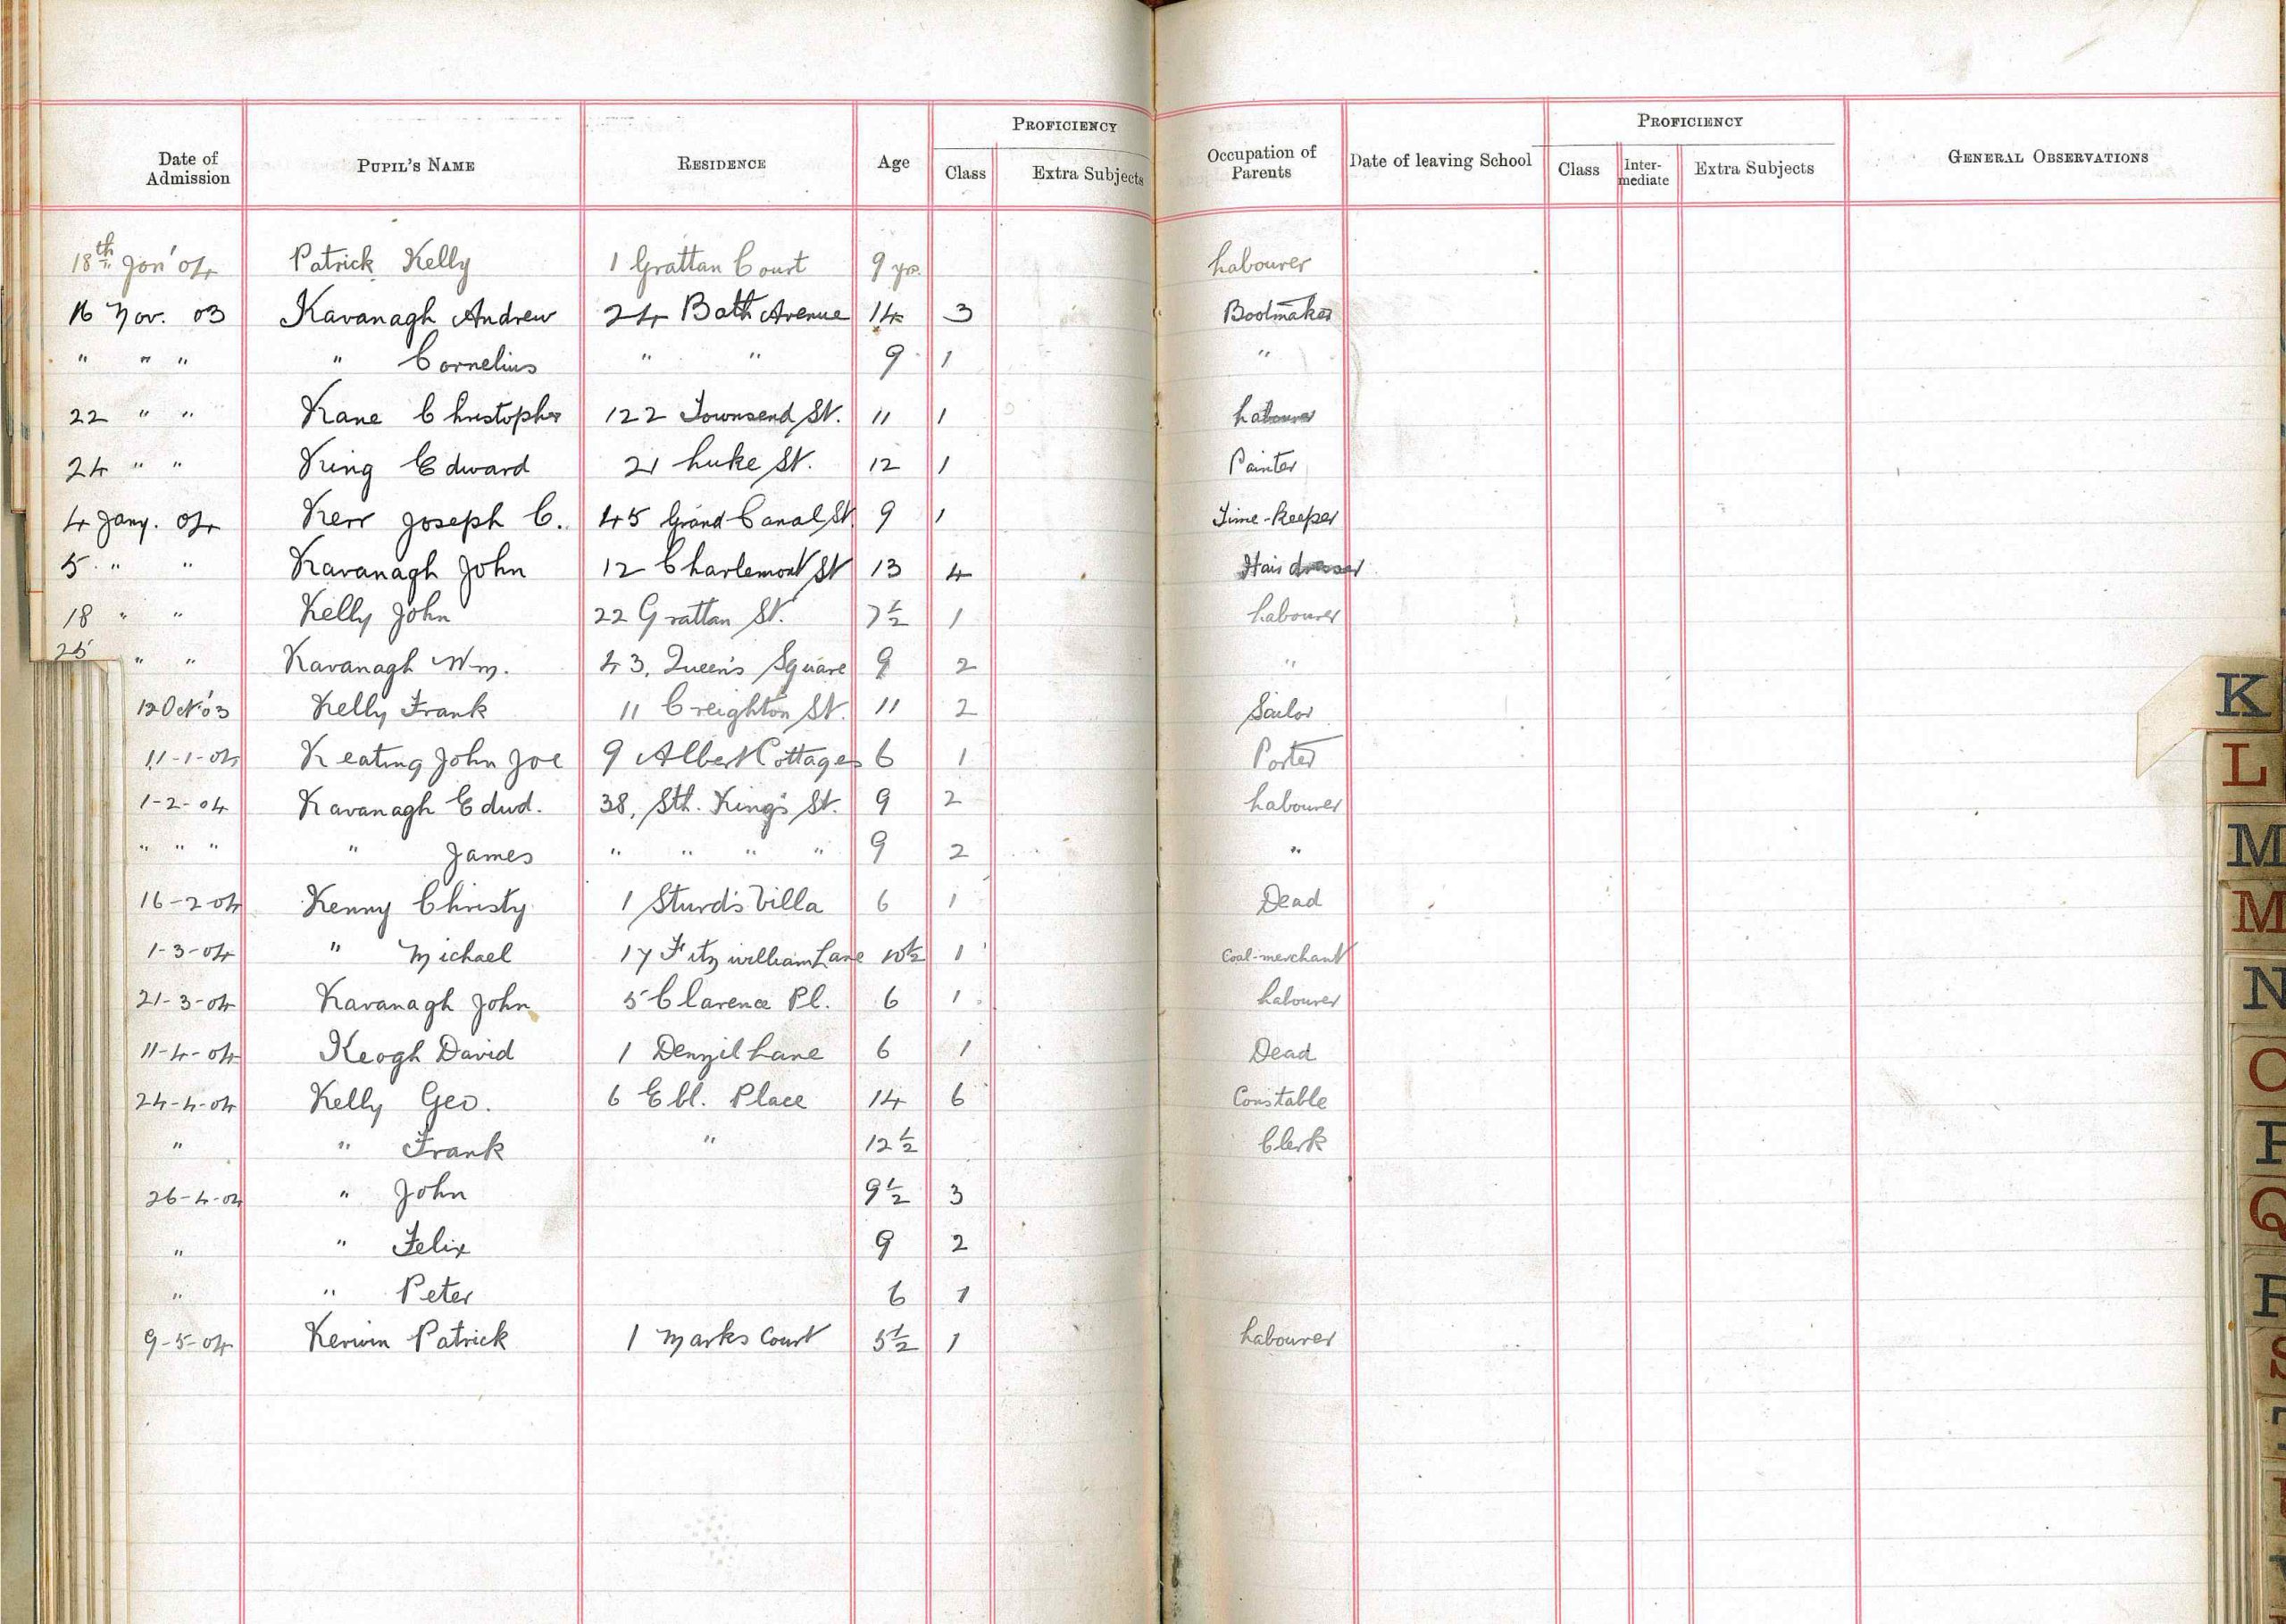 PROFICIENCY PROFICIENCY
Date of Admission PUPIL'S NAME RESIDENCE Age Class Extra Subjects Occupation of Parents Date of leaving School Class Inter-mediate Extra Subjects GENERAL OBSERVATIONS
18th Jan' 04 Patrick Kelly 1 Grattan Court 9 yrs. Labourer
16 Nov. 03 Kavanagh Andrew 24 Bath Avenue 14 3 Bootmaker
" " " " Cornelius " " 9 1 "
22 " " Kane Christopher 122 Townsend St. 11 1 Labourer
24 " " King Edward 21 Luke St. 12 1 Painter
4 Jany. 04 Kerr Joseph C. 45 Grand Canal St. 9 1 Time-Keeper
5 " " Kavanagh John 12 Charlemont St 13 4 Hair dresser
18 " " Kelly John 22 Grattan St. 7½ 1 Labourer
25 " " Kavanagh Wm. 43, Queen's Square 9 2 "
12 Oct '03 Kelly Frank 11 Creighton St. 11 2 Sailor
11-1-04 Keating John Joe 9 Albert Cottages 6 1 Porter
1-2-04 Kavanagh Edwd. 38, Sth. King's St. 9 2 Labourer
" " " " James " " " " 9 2 "
16-2-04 Kenny Christy 1 Sturd's Villa 6 1 Dead
1-3-04 " Michael 17 Fitzwilliam Lane 10½ 1 Coal-merchant
21-3-04 Kavanagh John 5 Clarence Pl. 6 1 Labourer
11-4-04 Keogh David 1 Denzil Lane 6 1 Dead
24-4-04 Kelly Geo. 6 Ebl. Place 14 6 Constable
" " Frank " 12½ Clerk
26-4-04 " John 9½ 3
" " Felix 9 2
" " Peter 6 1
9-5-04 Kerwin Patrick 1 Marks Court 5½ 1 Labourer
K
L
M
M
N
O
P
Q
R
S
T